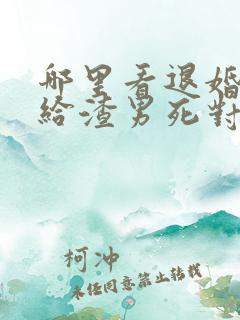 哪里看退婚
给渣男死對
柯冲
未经同意禁止转载